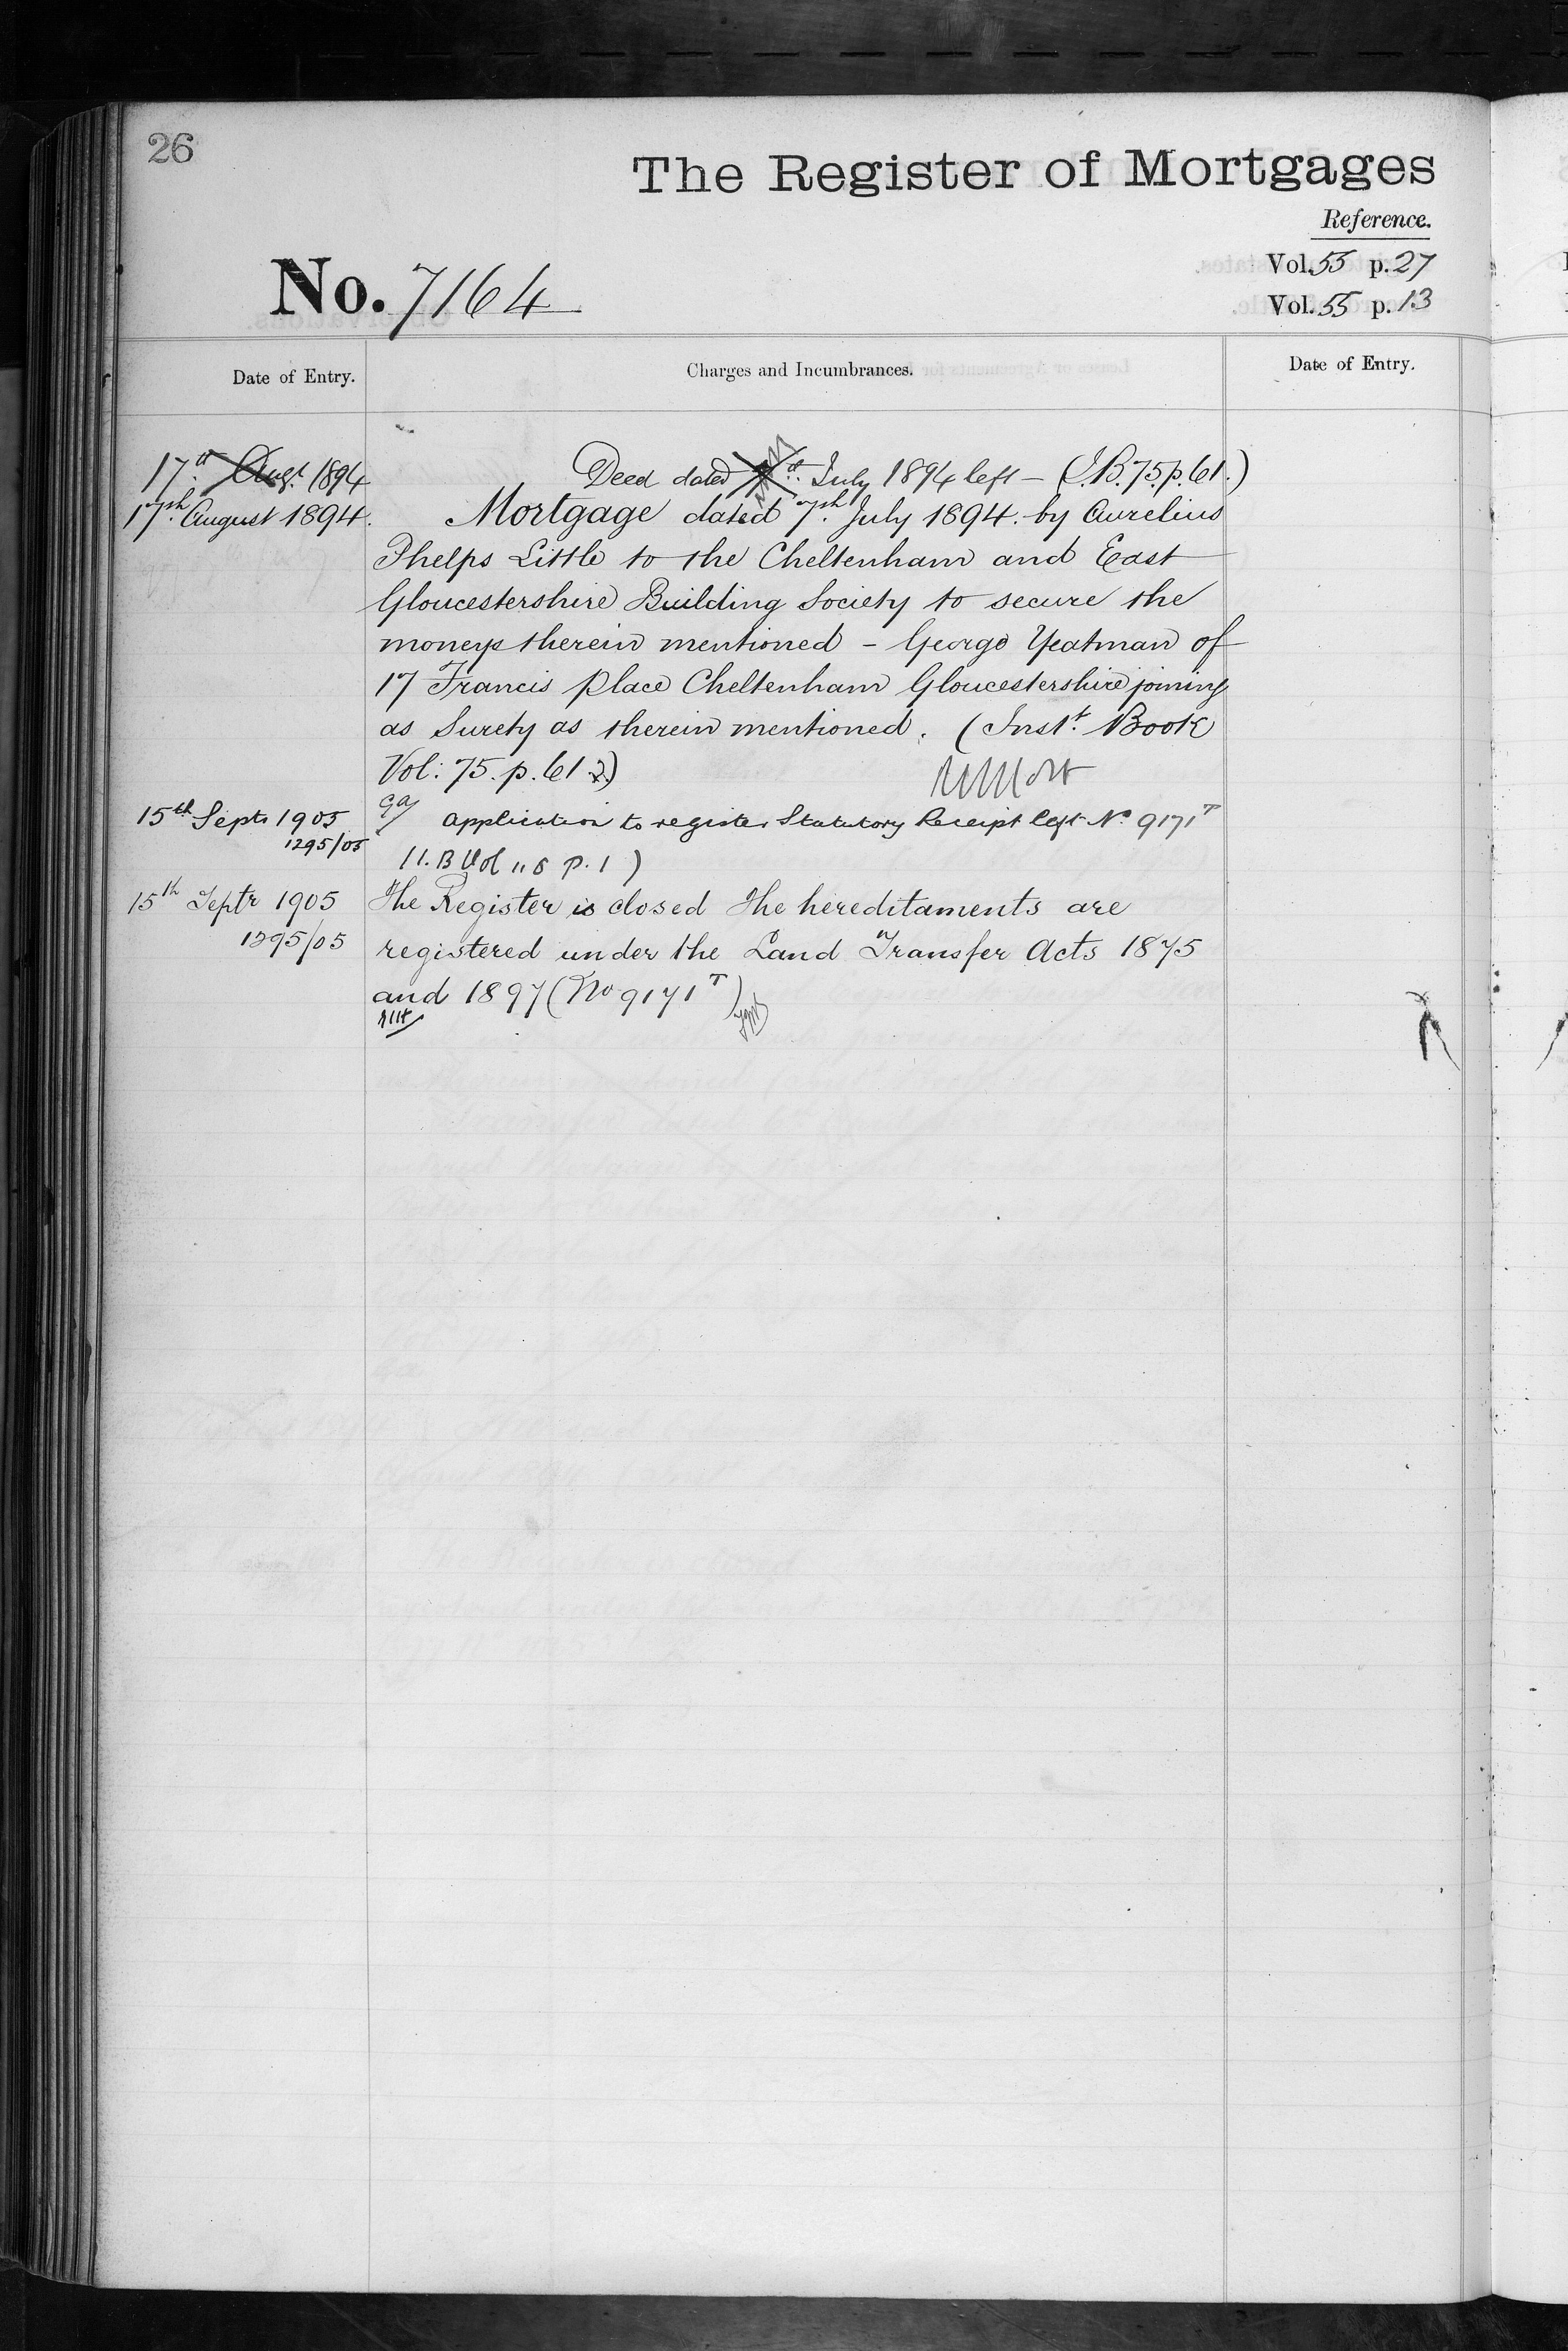 26
The Register of Mortgages
Reference.
Vol. 55 p. 27
No. 7164
Vol. 55 p. 13
Date of Entry.
Charges and Incumbrances.
Date of Entry.
17th Augt 1894
Deed dated 7th July 1894 left - (I.B. 75. p. 61.)
17th August 1894.
Mortgage dated 7th July 1894. by Aurelius
Phelps Little to the Cheltenham and East
Gloucestershire Building Society to secure the
moneys therein mentioned - George Yeatman of
17 Francis Place Cheltenham Gloucestershire joining
as Surety as therein mentioned. (Inst. Book
Vol: 75. p. 61
15th Septr 1905
1295/05
application to register Statutory Receipt left No 9171T
p. 1)
15th Septr 1905
1295/05
The Register is closed the hereditaments are
registered under the Land Transfer Acts 1875
and 1897 (No 9171T)